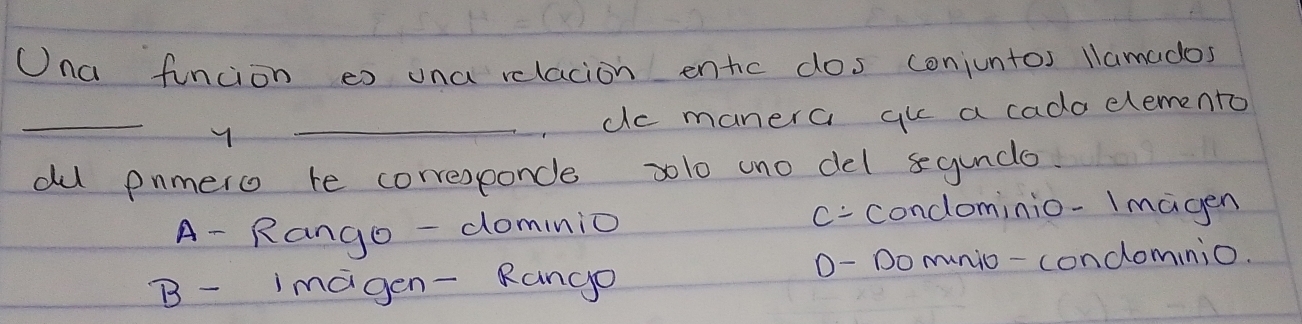 Una función es una relación entre dos conjuntos llamados
______ y __________, de manera que a cada elemento
del primero le corresponde solo uno del segundo.
A- Rango - dominio
C- Condominio - Imágen
B - Imágen - Rango
D- Dominio - condominio.